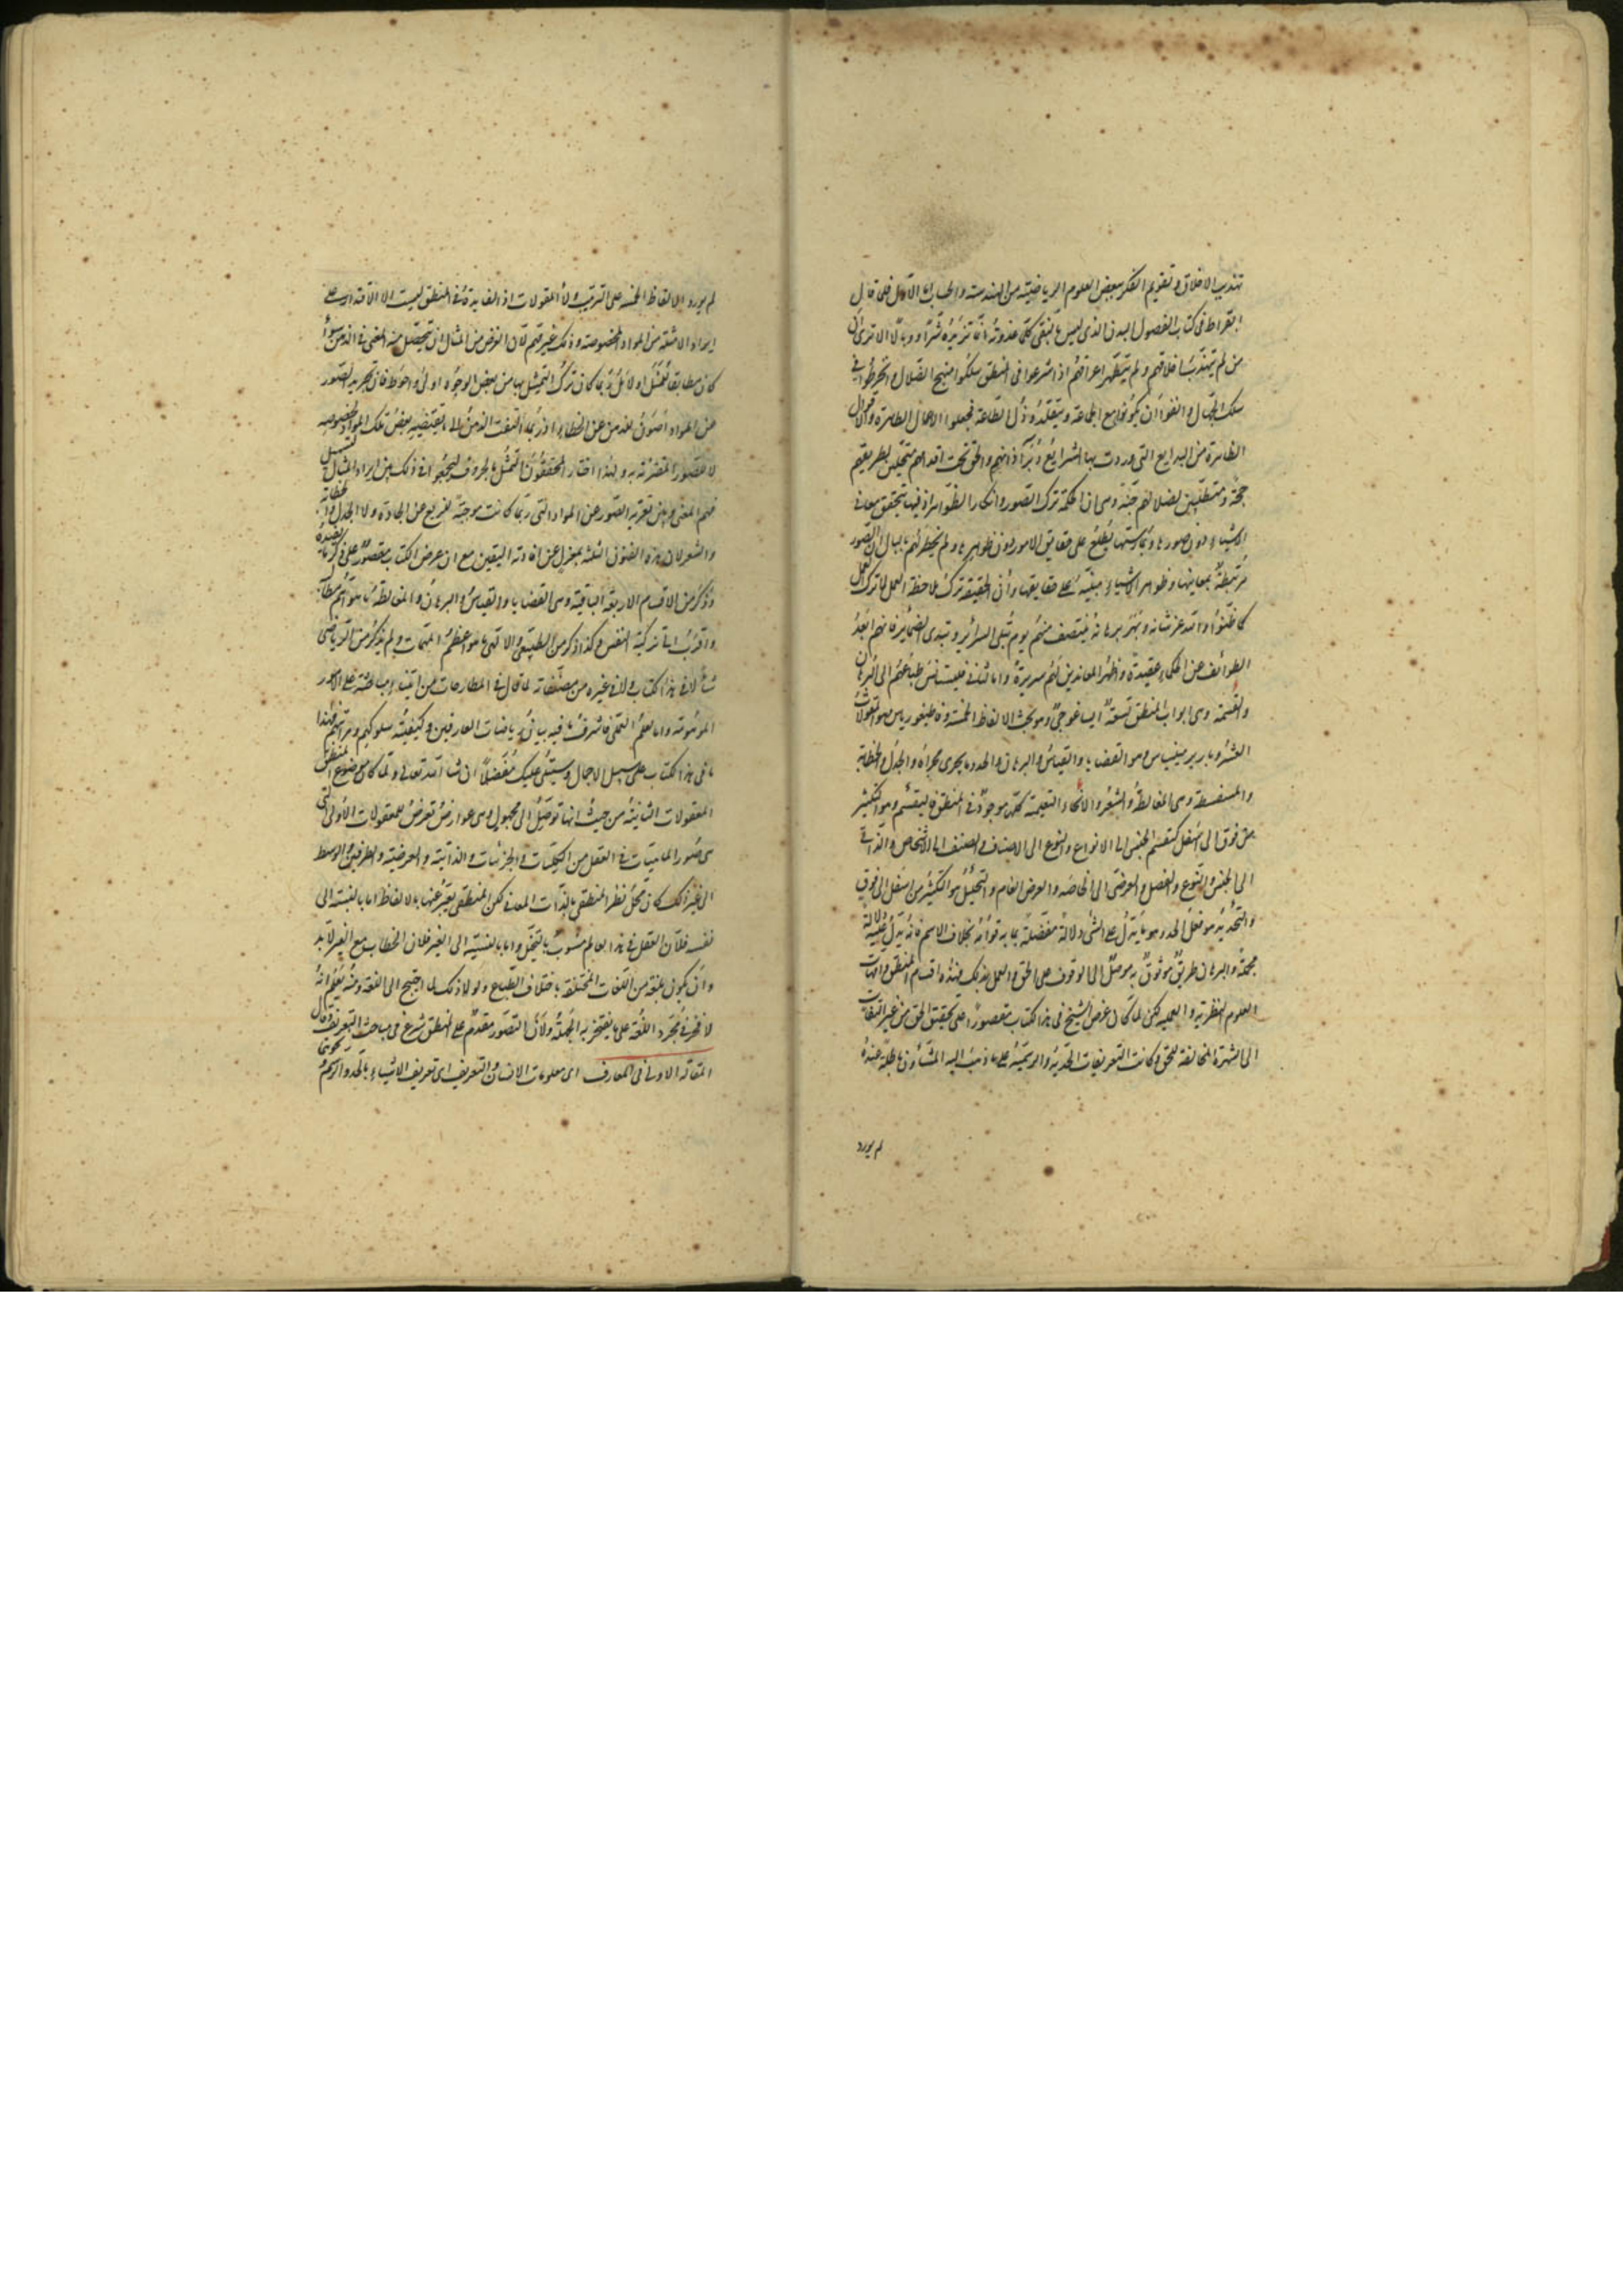 تهذيب الاخلاق و تقويم الفكر ببعض العلوم الرياضية من الهندسة و الحساب اما الاول فلما قال
ابقراط فى كتاب الفصول البدن الذى ليس بنقى كلما غذوته انما تزيده شرا و وبالا الا ترى ان
من لم يتهذب اخلاقهم و لم يتطهر اعراقهم اذا شرعوا فى المنطق سلكوا منهج الضلال و انخرطوا فى
سلك الجهال و انفوا ان يكونوا مع الجماعة و يتقلدوا ذل الطاعة فجعلوا الاعمال الطاهرة و الاقوال
الظاهرة من البدايع التى وردت بها الشرايع دبر آذانهم و الحق تحت اقدامهم متحيلين لطريقهم
حجة و متطلبين لضلالهم جنة و هى ان الحكمة ترك الصور و انكار الظواهر اذ فيها يتحقق معانى
الاشياء دون صورها و بممارستها يطلع على حقايق الامور دون ظواهرها و لم يخطر لهم بالبال ان الصور
مرتبطة بمعانيها و ظواهر الاشياء مبنية على حقايقها و ان الحقيقة ترك ملاحظة العمل لا ترك العمل
كما ظنوا و الله عز شانه و بهر برهانه ينتصف منهم يوم تبلى السرائر و تبدى الضمائر فانهم ابعد
الطوائف عن الحكماء عقيدة و اظهر المعاندين لهم سريرة و اما الثانى فليستانس طباعهم الى البرهان
و القسمة و هى ابواب المنطق تسعة ايساغوجى و هو بحث الالفاظ الخمسة و قاطيغورياس و هو المقولات
العشر و باريرمينياس و هو القضايا و القياس و البرهان و الحد و ما يجرى مجراه و الجدل و الخطابة
و السفسطة و هى المغالطة و الشعر و الانحاء التعليمية كلها موجودة فى المنطق فالتقسيم و هو التكثير
من فوق الى اسفل كتقسيم الجنس الى الانواع و النوع الى الاصناف و الصنف الى الاشخاص و الذاتى
الى الجنس و النوع و الفصل و العرضى الى الخاصة و العرض العام و التحليل هو التكثير من اسفل الى فوق
و التحديد و هو فعل الحد و هو ما يدل على الشى دلالة مفصلة بما به قوامه بخلاف الاسم فانه يدل عليه دلالة
مجملة و البرهان طريق موثوق به موصل الى الوقوف على الحق و العمل بذلك فهذه اقسام المنطق و امهات
العلوم النظرية و العملية لكن لما كان غرض الشيخ فى هذا الكتاب مقصورا على تحقيق الحق من غير التفات
الى الشهرة المخالفة للحق و كانت التعريفات الحدية و الرسمية على ما ذهب اليه المشاؤن باطلة عنده
لم يورد
لم يورد الالفاظ الخمسة على الترتيب و لا المقولات اذ الغاية فى المنطق ليست الا الاقتدار على
ايراد الامثلة من المواد المخصوصة و ذلك غير مهم لان الغرض من المثال ان يتحصل منه المعنى فى الذهن سواء
كان مطابقا للممثل او لا بل ربما كان ترك التمثيل بها من بعض الوجوه اولى و احوط فان تجريد الصور
عن المواد اصون للذهن عن الخطاء اذ ربما التفت الذهن الى ما يقتضيه بعض تلك المواد لخصوصه
لا للصور المقترنة به و لهذا اختار المحققون التمثيل بالحروف ليجمعوا فى ذلك بين ايراد المثال لتسهيل
فهم المعنى و بين تعرية الصور عن المواد التى ربما كانت موجبة للزيغ عن الجادة و لا الجدل و الخطابة
و الشعر لان هذه الفنون الثلثة بمعزل عن افادته اليقين مع ان غرض الكتاب مقصور على ذكر ما يفيده
و ذكر من الاقسام الاربعة الباقية و هى القضايا و القياس و البرهان و المغالطة ما هو اهم مطالب
و اقرب الى تزكية النفس و كذا ذكر من الطبيعى و الالهى ما هو اعظم المهمات و لم يذكر من الرياضى
شيأ لا فى هذا الكتاب و لا فى غيره من مصنفاته لما قال فى المطارحات من ابتناء مباحثه على الامور
الموهومة و اما العلم العملى فاشرف ما فيه بيان رياضات العارفين و كيفية سلوكهم و مراتبهم فهذا
ما فى هذا الكتاب على سبيل الاجمال و سيتلى عليك مفصلا ان شاء الله تعالى و لما كان موضوع المنطق
المعقولات الثانية من حيث انها توصل الى مجهول و هى عوارض تعرض للمعقولات الاولى التى
هى صور الماهيات فى العقل من الكليات و الجزئيات و الذاتية و العرضية و الطرفين و الوسط
الى غير ذلك كان محل نظر المنطقى بالذات المعانى لكن المنطقى يعبر عنها بالالفاظ اما بالنسبة الى
نفسه فلان العقل فى هذا العالم مشوب بالتخيل و اما بالنسبة الى الغير فلان الخطاب مع الغير لابد
و ان يكون بلغة من اللغات المختلفة باختلاف الطباع و لولا ذلك لما احتيج الى اللغة و منه يعلم انه
لا فخر فى مجرد اللغة على ما يفتخر به الجهلة و لان التصور مقدم على المنطق شرع فى مباحث التعريف و قال
المقالة الاولى فى المعارف اى معلومات الانسان و التعريف اى تعريف الاشياء بالحد و الرسم